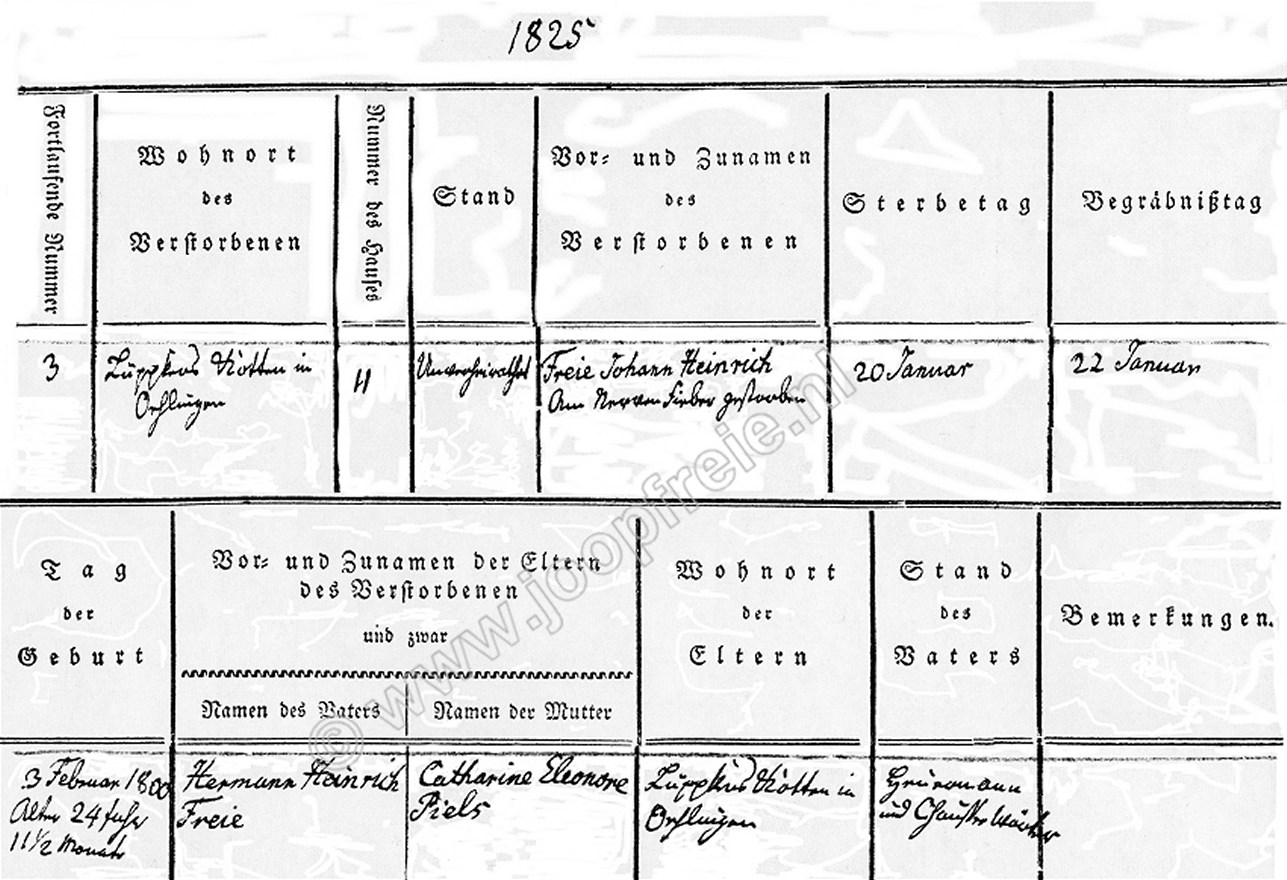 1825
Fortlaufende Nummer
Wohnort
des
Verstorbenen
Nummer des Hauses
Stand
Vor- und Zunamen
des
Verstorbenen
Sterbetag
Begräbnißtag
3
Lüppkes Kotten in
Oehlingen
11
Unverheirathet
Freie Johann Heinrich
Am Nerven Fieber gestorben
20 Januar
22 Januar
Tag
der
Geburt
Vor- und Zunamen der Eltern
des Verstorbenen
und zwar
Namen des Vaters
Namen der Mutter
Wohnort
der
Eltern
Stand
des
Vaters
Bemerkungen.
3 Februar 1800
Alter 24 Jahr
11 1/2 Monat
Hermann Heinrich
Freie
Catharine Eleonore
Piels
Lüppkes Kotten in
Oehlingen
Heuermann
und Chaussee Wärter
© www.joopfreie.nl